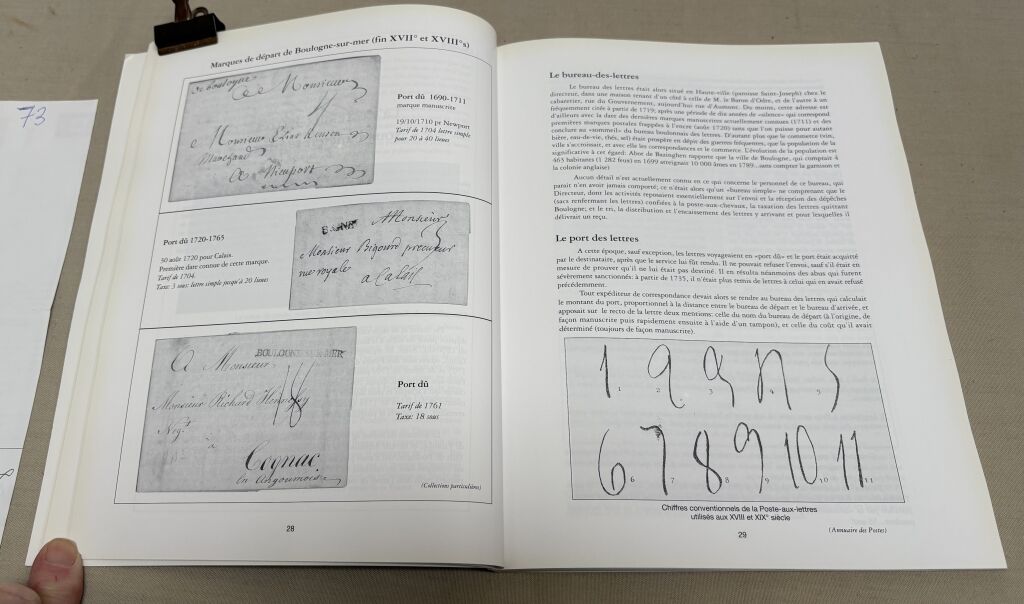 73
Marques de départ de Boulogne-sur-mer (fin XVII° et XVIII°s)
De boulogne
A Monsieur
Monsieur
A Nieuport
Port dû 1690-1711
marque manuscrite
19/10/1710 pr Newport
Tarif de 1704 lettre simple
pour 20 à 40 lieues
Port dû 1720-1765
30 août 1720 pour Calais.
Première date connue de cette marque.
Tarif de 1704.
Taxe: 3 sous: lettre simple jusqu'à 20 lieues
Monsieur
Monsieur Bigourd procureur
rue royale
a Calais
A Monsieur
BOULOGNE-SUR-MER
Monsieur Richard Hennessy
Neg.t
à
Cognac
en Angoumois
Port dû
Tarif de 1761
Taxe: 18 sous
(Collections particulières)
28
Le bureau-des-lettres
Le bureau des lettres était alors situé en Haute-ville (paroisse Saint-Joseph) chez le
directeur, dans une maison tenant d'un côté à celle de M. le Baron d'Ordre, et de l'autre à un
cabaretier, rue du Gouvernement, aujourd'hui rue d'Aumont. Du moins, cette adresse est
fréquemment citée à partir de 1719; après une période de dix années de «silence» qui correspond
d'ailleurs avec la date des dernières marques manuscrites actuellement connues (1711) et des
premières marques postales frappées à l'encre (août 1720) sans que l'on puisse pour autant
conclure au «sommeil» du bureau boulonnais des lettres. D'autant plus que le commerce (vin,
bière, eau-de-vie, thés, sel) était prospère en dépit des guerres fréquentes, que la population de la
ville s'accroissait, et avec elle les correspondances et le commerce. L'évolution de la population est
significative à cet égard: Abot de Bazinghen rapporte que la ville de Boulogne, qui comptait 4
463 habitants (1 282 feux) en 1699 atteignait 10 000 âmes en 1789...sans compter la garnison et
la colonie anglaise)
Aucun détail n'est actuellement connu en ce qui concerne le personnel de ce bureau, qui
paraît n'en avoir jamais comporté; ce n'était alors qu'un «bureau simple» ne comprenant que le
Directeur, dont les activités reposaient essentiellement sur l'envoi et la réception des dépêches
(sacs renfermant les lettres) confiées à la poste-aux-chevaux, la taxation des lettres quittant
Boulogne; et le tri, la distribution et l'encaissement des lettres y arrivant et pour lesquelles il
délivrait un reçu.
Le port des lettres
A cette époque, sauf exception, les lettres voyageaient en «port dû» et le port était acquitté
par le destinataire, après que le service lui fût rendu. Il ne pouvait refuser l'envoi, sauf s'il était en
mesure de prouver qu'il ne lui était pas destiné. Il en résulta néanmoins des abus qui furent
sévèrement sanctionnés: à partir de 1735, il n'était plus remis de lettres à celui qui en avait refusé
précédemment.
Tout expéditeur de correspondance devait alors se rendre au bureau des lettres qui calculait
le montant du port, proportionnel à la distance entre le bureau de départ et le bureau d'arrivée, et
apposait sur le recto de la lettre deux mentions: celle du nom du bureau de départ (à l'origine, de
façon manuscrite puis rapidement ensuite à l'aide d'un tampon), et celle du coût qu'il avait
déterminé (toujours de façon manuscrite).
1 2 3 4 5
6 7 8 9 10 11
Chiffres conventionnels de la Poste-aux-lettres
utilisés aux XVIII et XIX° siècle
(Annuaire des Postes)
29